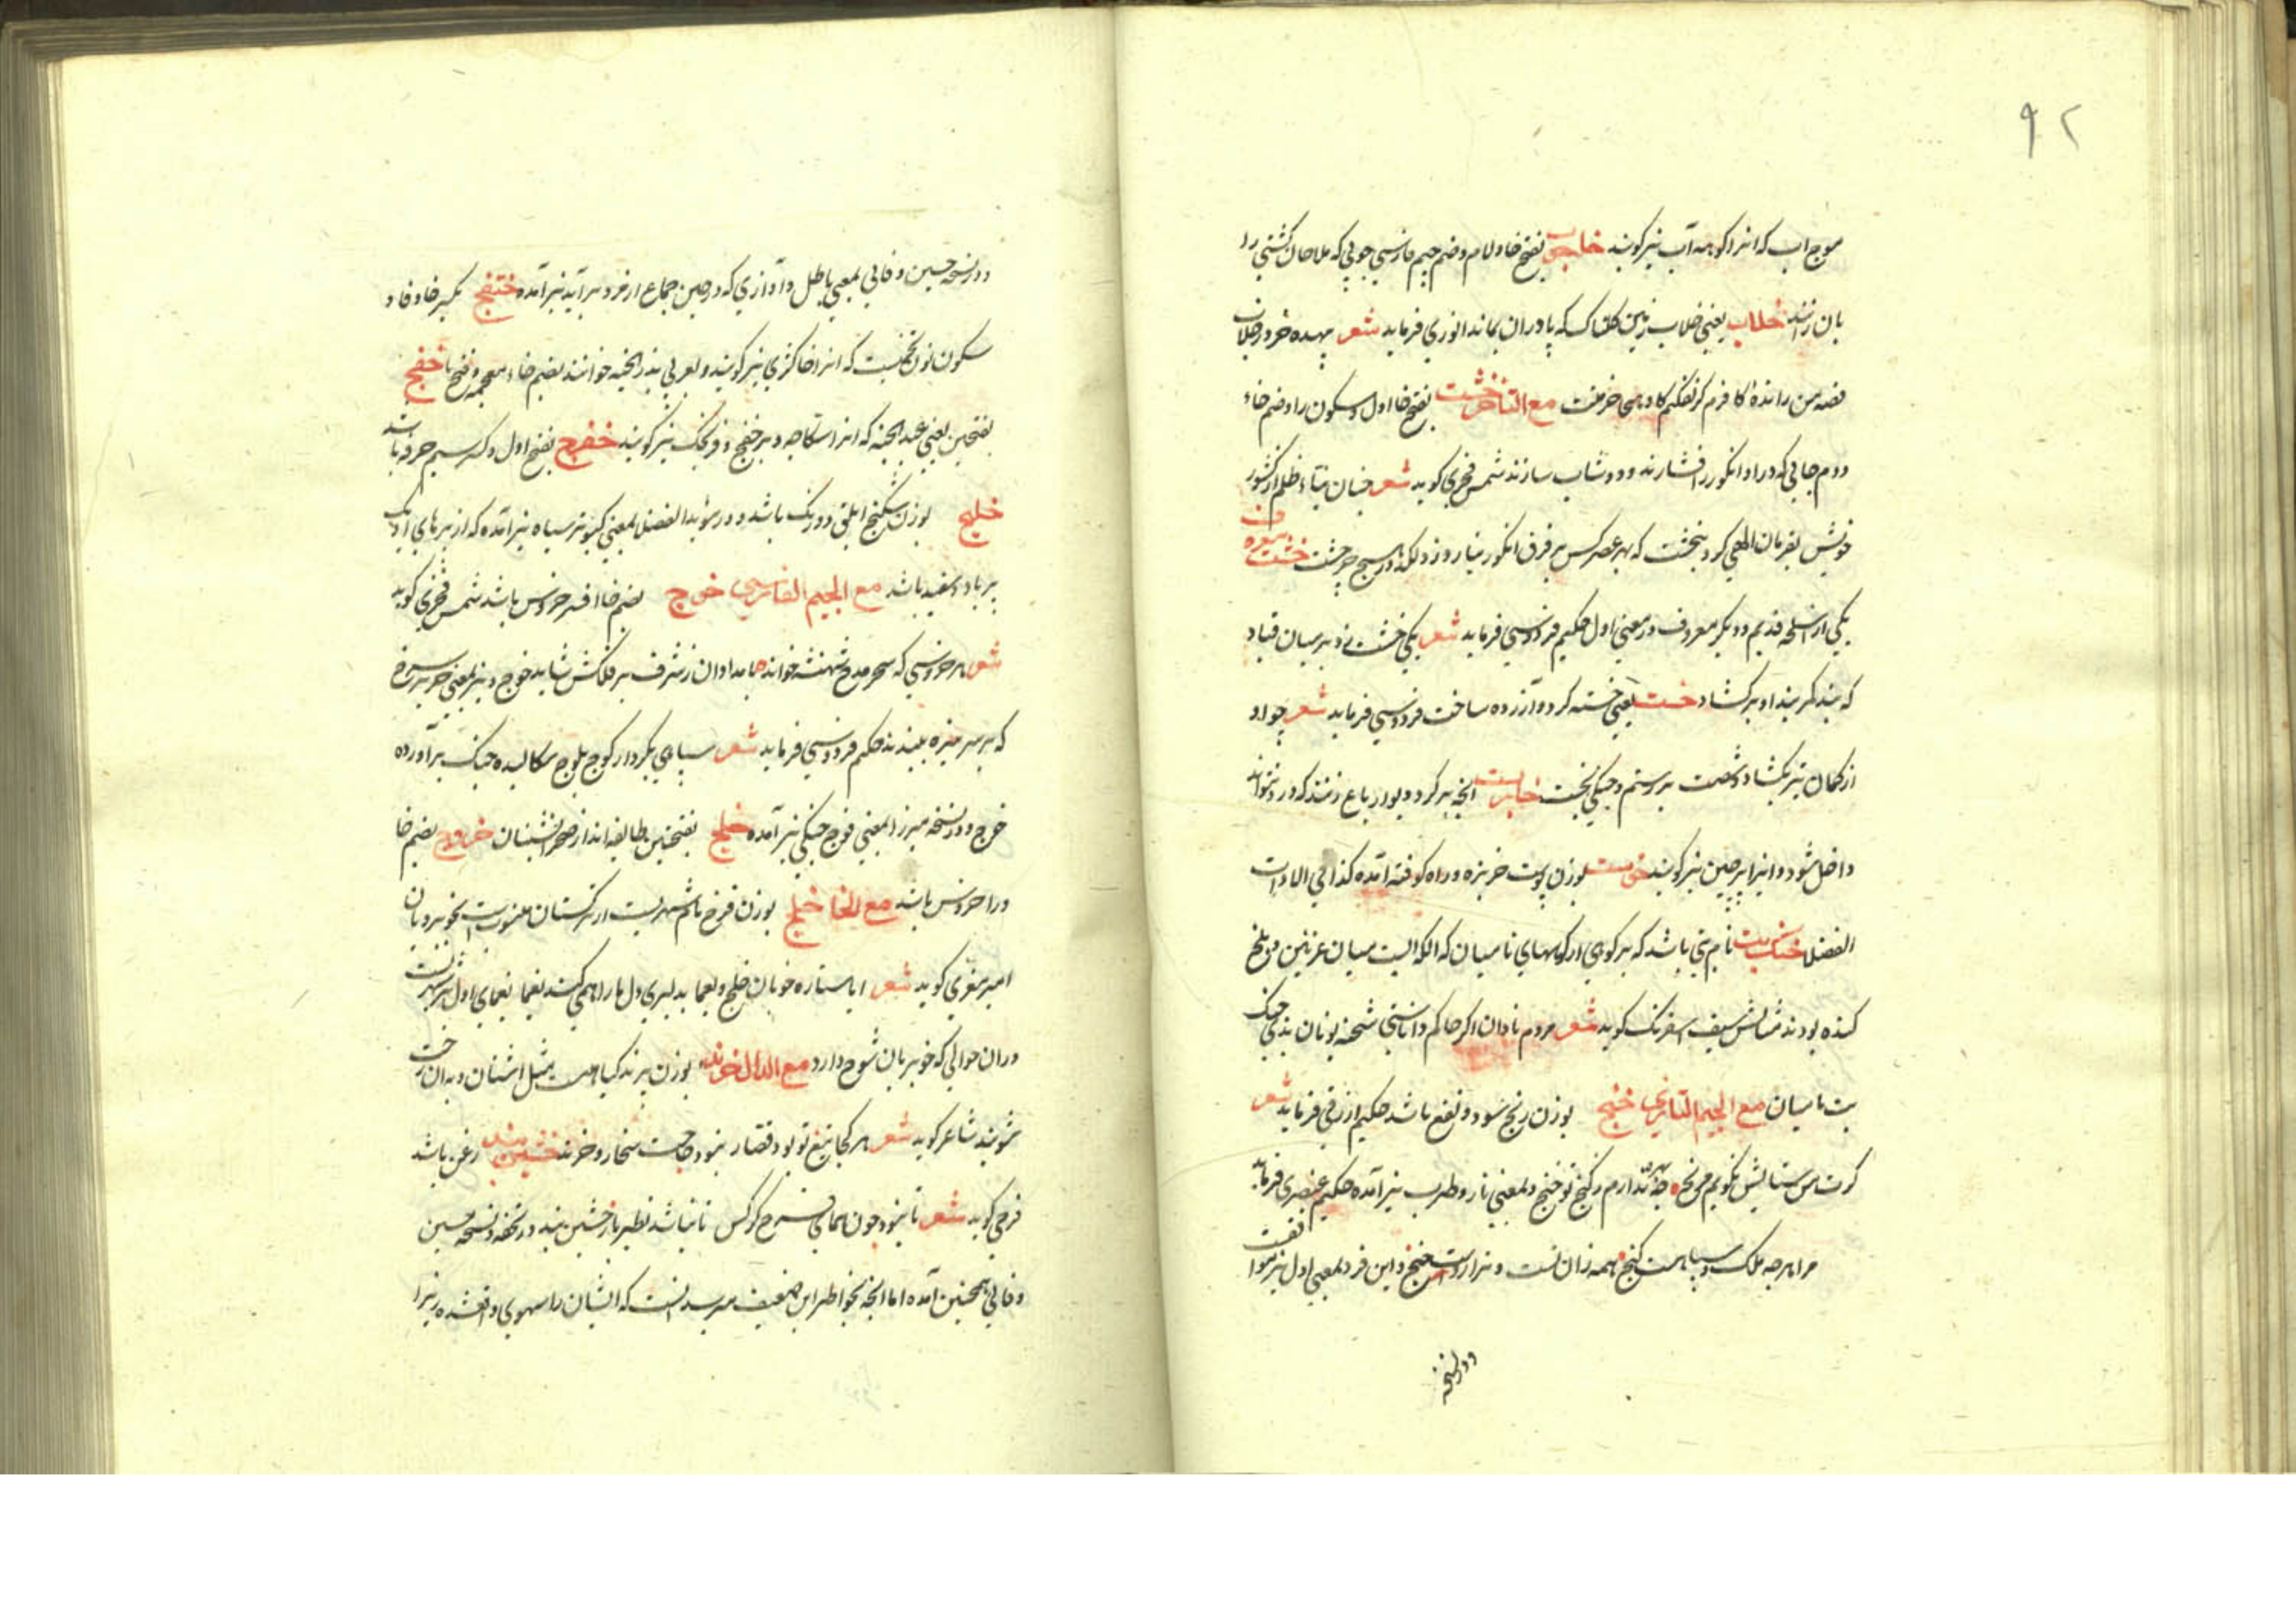 ۹۲
موج اب که انرا کوهه آب نیز کویند خلجوب بفتح خا و لام و ضم جیم فارسی چوبی که ملاحان کشتی را
بان رانند خلاب یعنی خلاب زمین کلناک که پا دران بماند انوری فرماید شعر بیهده خر در خلاب
قصه من رانده کافرم کر نفکنم کاو هجی خر مفت مع التا خرخشت بفتح خا اول و سکون را و ضم خاء
دوم جایی که در او انکور را فشارند و دوشاب سازند شمس فخری کوید شعر چنان بناء ظلم از کشور
خویش بفرمان الهی کرد بنخشت که بهر عصر کس بر فرق انکور نیارد زد لکد در هیچ چرخشت خشت
یکی از اسلحه قدیم و دیکر معروف در معنی اول حکیم فردوسی فرماید شعر یکی خشت زد بر میان قباد
که بند کمربند او بر کشاد خست یعنی خسته کرد و آزرده ساخت فردوسی فرماید شعر چو او
از کمان تیر بکشاد شصت بر رستم و جنکی بخست انچه بر کرد دیوار باغ زنند که در نتواند
داخل شود و انرا پرچین نیز کویند خربست بوزن پوست جزیره و راه کوفته آمده کذا فی الادات
الفضلا خنک بت نام بتی باشد که بر کوهی از کوههای بامیان که الکه ایست میان غزنین و بلخ
کنده بودند مثالش سیف اسفرنک کوید شعر مردم نادان اکر حاکم داناستی شحنه یونان بدی خنک
بت بامیان مع الجیم التازی خنج بوزن رنج سود و نفع باشد حکیم ازرقی فرماید شعر
کرت من ستایش نکویم مرنج چه دارم ز کنج تو خنج و بمعنی ناز و طرب نیز آمده حکیم عنصری فرماید
مرا هر چه ملک و سپاهست و کنج همه زان تست و ترا زوست خنج و این فرد بمعنی اول نیز میتوان کفت
و در نسخه
و در نسخه حسین وفایی بمعنی باطل و آوازی که در حین جماع از فرد بر آید نیز آمده خفنج بکسر خا و فا و
سکون نون تخمیست که انرا خاکژی نیز کویند و بعربی بذر الخبه خوانند بضم خاء معجمه و فتح با خفج
بفتحین یعنی عبد الجنه که انرا ستاچه و برخفج و فرنجک نیز کویند خفرج بفتح اول و کسر سیم خرفه باشد
خلنج بوزن شکنج ابلق دورنک باشد و در مؤید الفضلا بمعنی کبوتر سیاه نیز آمده که از پرهای او یک
پر یا دو سفید باشد مع الجیم الفارسی خوچ بضم خا افسر خروس باشد شمس فخری کوید
شعر هر خروسی که سحر مدح شهنشه خواند بامدادان ز شرف بر فلکش شاید خوچ و نیز بمعنی حریر سرخ
که بر سر نیزه ببندند حکیم فردوسی فرماید شعر سپاهی بکردار کوچ و بلوچ سکالیده جنک برآورده
خوچ و در نسخه میرزا بمعنی قوچ جنکی نیز آمده خلج بفتحتین طایفه اند از صحرانشینان خروچ بضم خا
و را خروس باشد مع الخا خلخ بوزن فرخ نام شهریست از ترکستان منسوب بخوبرویان
امیر معزی کوید شعر ایا ستاره خوبان خلخ و یغما بدلبری دل ما را همی کنند یغما یغمای اول شهریست
دران حوالی که خوبرویان شوخ دارد مع الدال خرند بوزن پرند کیاهیست مثل اشنان و بدان رخت
شویند شاعر کوید شعر هر کجا تیغ تو بود قصار نبود حاجت شخار و خرند خشین بند زغن باشد
فرخی کوید شعر تا نبود چون همای فرخ کرکس تا نباشد نظیر باز خشین بند در تحفه و نسخه حسین
وفایی همچنین آمده اما انچه بخواطر این ضعیف میرسد انست که ایشان را سهوی واقع شده زیرا